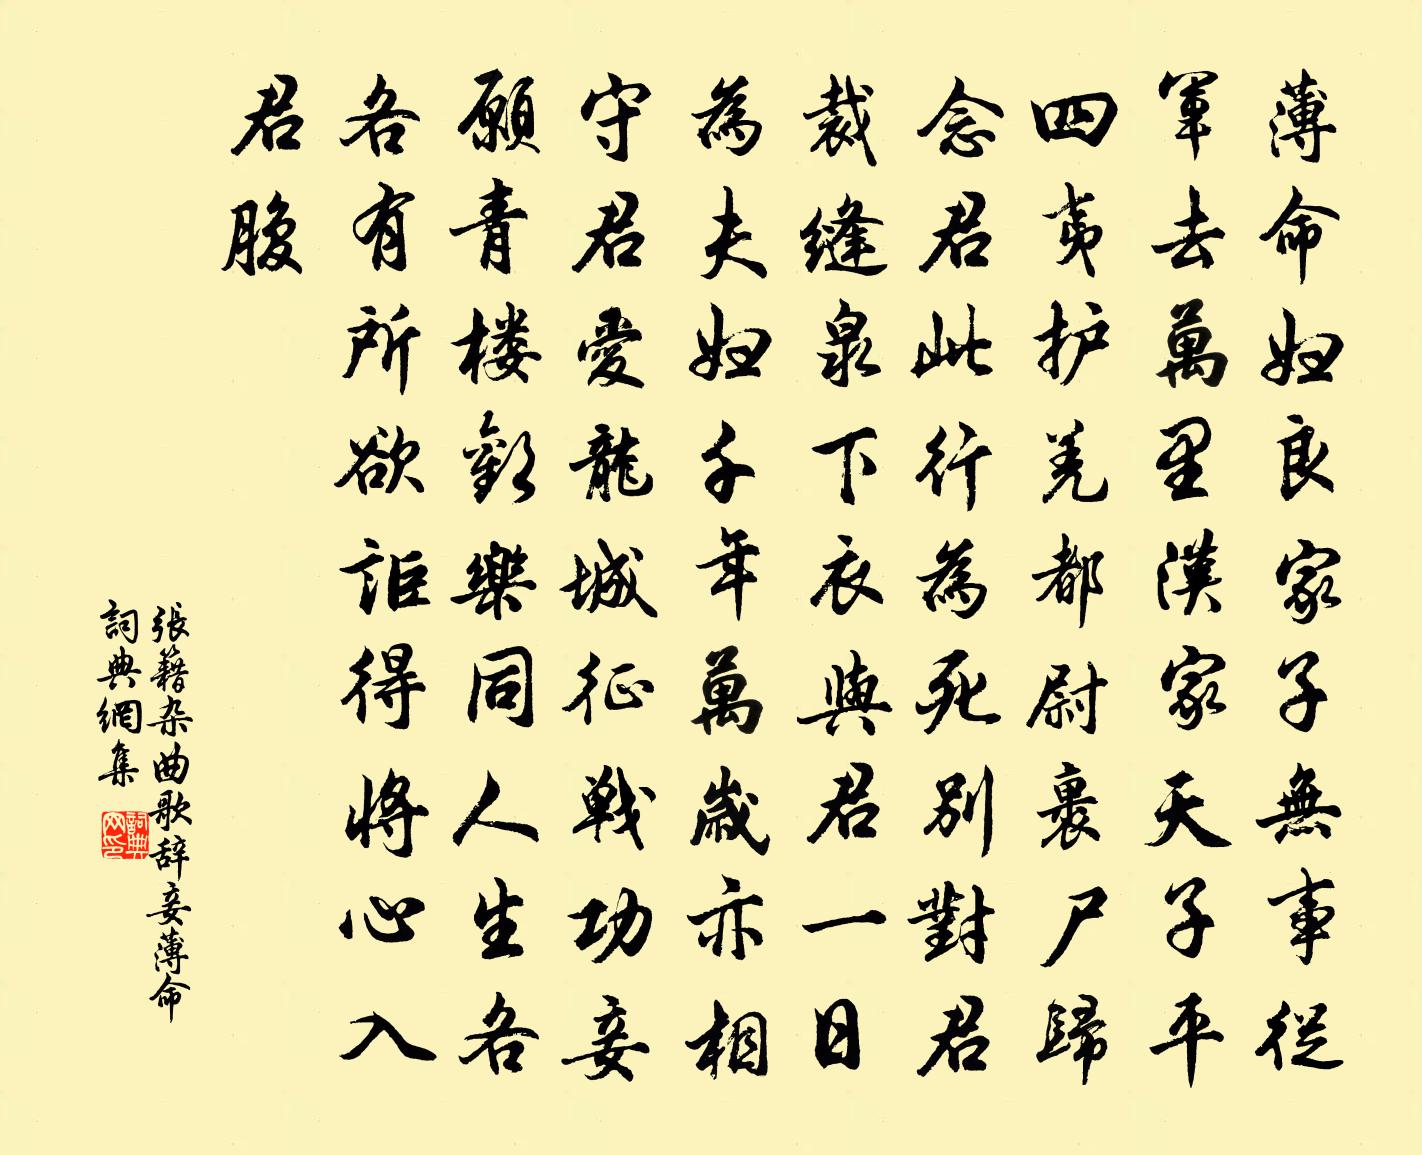 薄命妇良家子無事従
軍去萬里漢家天子平
四夷护羌都尉裹尸歸
念君此行為死別對君
裁縫泉下衣與君一日
為夫妇千年萬歳亦相
守君愛龍城征戦功妾
願青楼歡樂同人生各
各有所欲詎得将心入
君腹
張籍杂曲歌辞妾薄命
詞典網集
詞典
网印